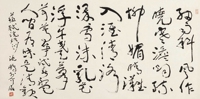 細雨斜風作
曉寒淡煙疏
柳媚晴灘
入淮清洛漸
漫漫雪沫乳花
浮午盞蓼茸
蒿筍試春盤
人間有味是清歡